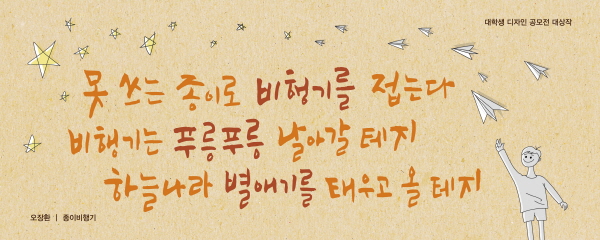 대학생 디자인 공모전 대상작
못 쓰는 종이로 비행기를 접는다
비행기는 푸릉푸릉 날아갈 테지
하늘나라 별애기를 태우고 올 테지
오장환 | 종이비행기